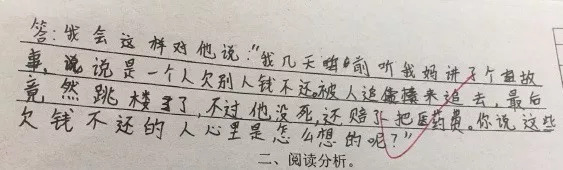 答:我会这样对他说:"我几天前听我妈讲了个故
事,说是一个人欠别人钱不还被人追来追去,最后
竟然跳楼了,不过他没死,还赔了把医药费。你说这些
欠钱不还的人心里是怎么想的呢?"
二、阅读分析。